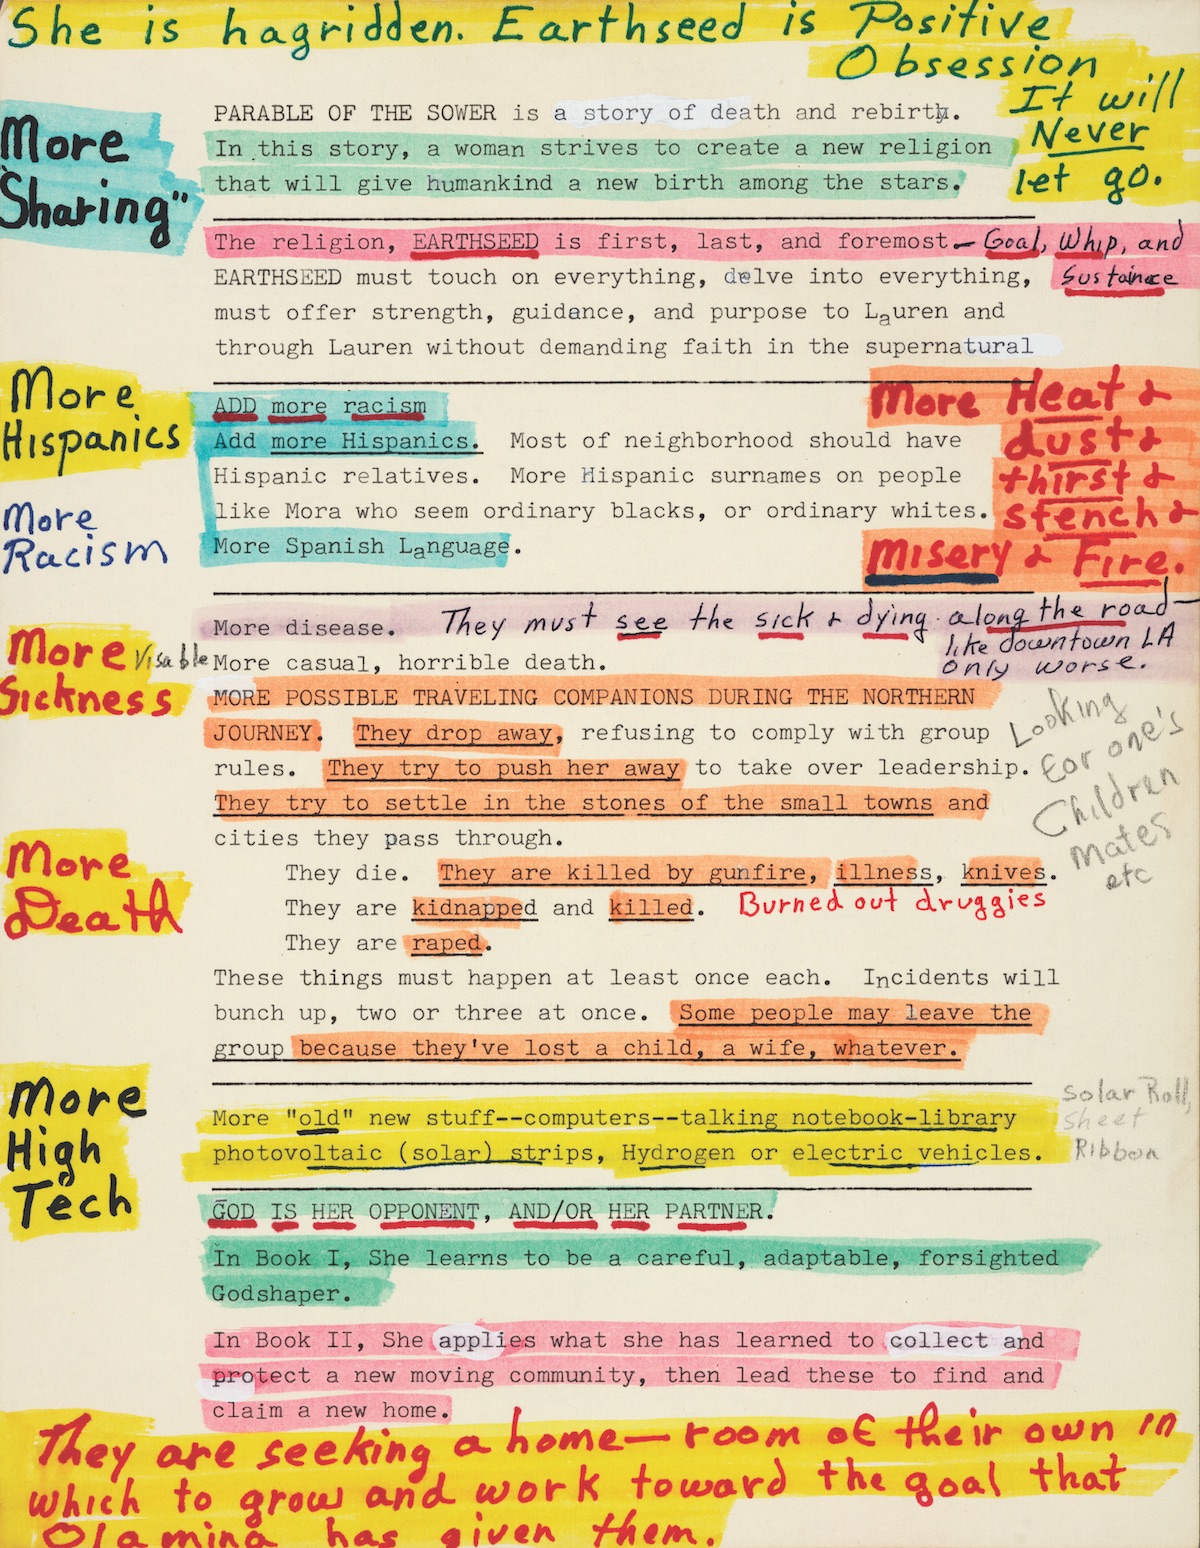 She is hagridden. Earthseed is Positive
Obsession
It will
Never
let go.
More
"Sharing"
PARABLE OF THE SOWER is a story of death and rebirth.
In this story, a woman strives to create a new religion
that will give humankind a new birth among the stars.
The religion, EARTHSEED is first, last, and foremost — Goal, Whip, and
Sustaince
EARTHSEED must touch on everything, delve into everything,
must offer strength, guidance, and purpose to Lauren and
through Lauren without demanding faith in the supernatural
More
Hispanics
More
Racism
ADD more racism
Add more Hispanics. Most of neighborhood should have
Hispanic relatives. More Hispanic surnames on people
like Mora who seem ordinary blacks, or ordinary whites.
More Spanish Language.
More Heat &
dust &
thirst &
stench &
Misery & Fire.
More disease. They must see the sick & dying along the road—
like downtown LA
only worse.
More Visable
Sickness
More casual, horrible death.
MORE POSSIBLE TRAVELING COMPANIONS DURING THE NORTHERN
JOURNEY. They drop away, refusing to comply with group
rules. They try to push her away to take over leadership.
They try to settle in the stones of the small towns and
cities they pass through.
Looking
For one's
Children
Mates
etc
More
Death
They die. They are killed by gunfire, illness, knives.
They are kidnapped and killed. Burned out druggies
They are raped.
These things must happen at least once each. Incidents will
bunch up, two or three at once. Some people may leave the
group because they've lost a child, a wife, whatever.
More
High
Tech
More "old" new stuff--computers--talking notebook-library
photovoltaic (solar) strips, Hydrogen or electric vehicles.
Solar Roll,
Sheet
Ribbon
GOD IS HER OPPONENT, AND/OR HER PARTNER.
In Book I, She learns to be a careful, adaptable, forsighted
Godshaper.
In Book II, She applies what she has learned to collect and
protect a new moving community, then lead these to find and
claim a new home.
They are seeking a home — room of their own in
which to grow and work toward the goal that
Olamina has given them.